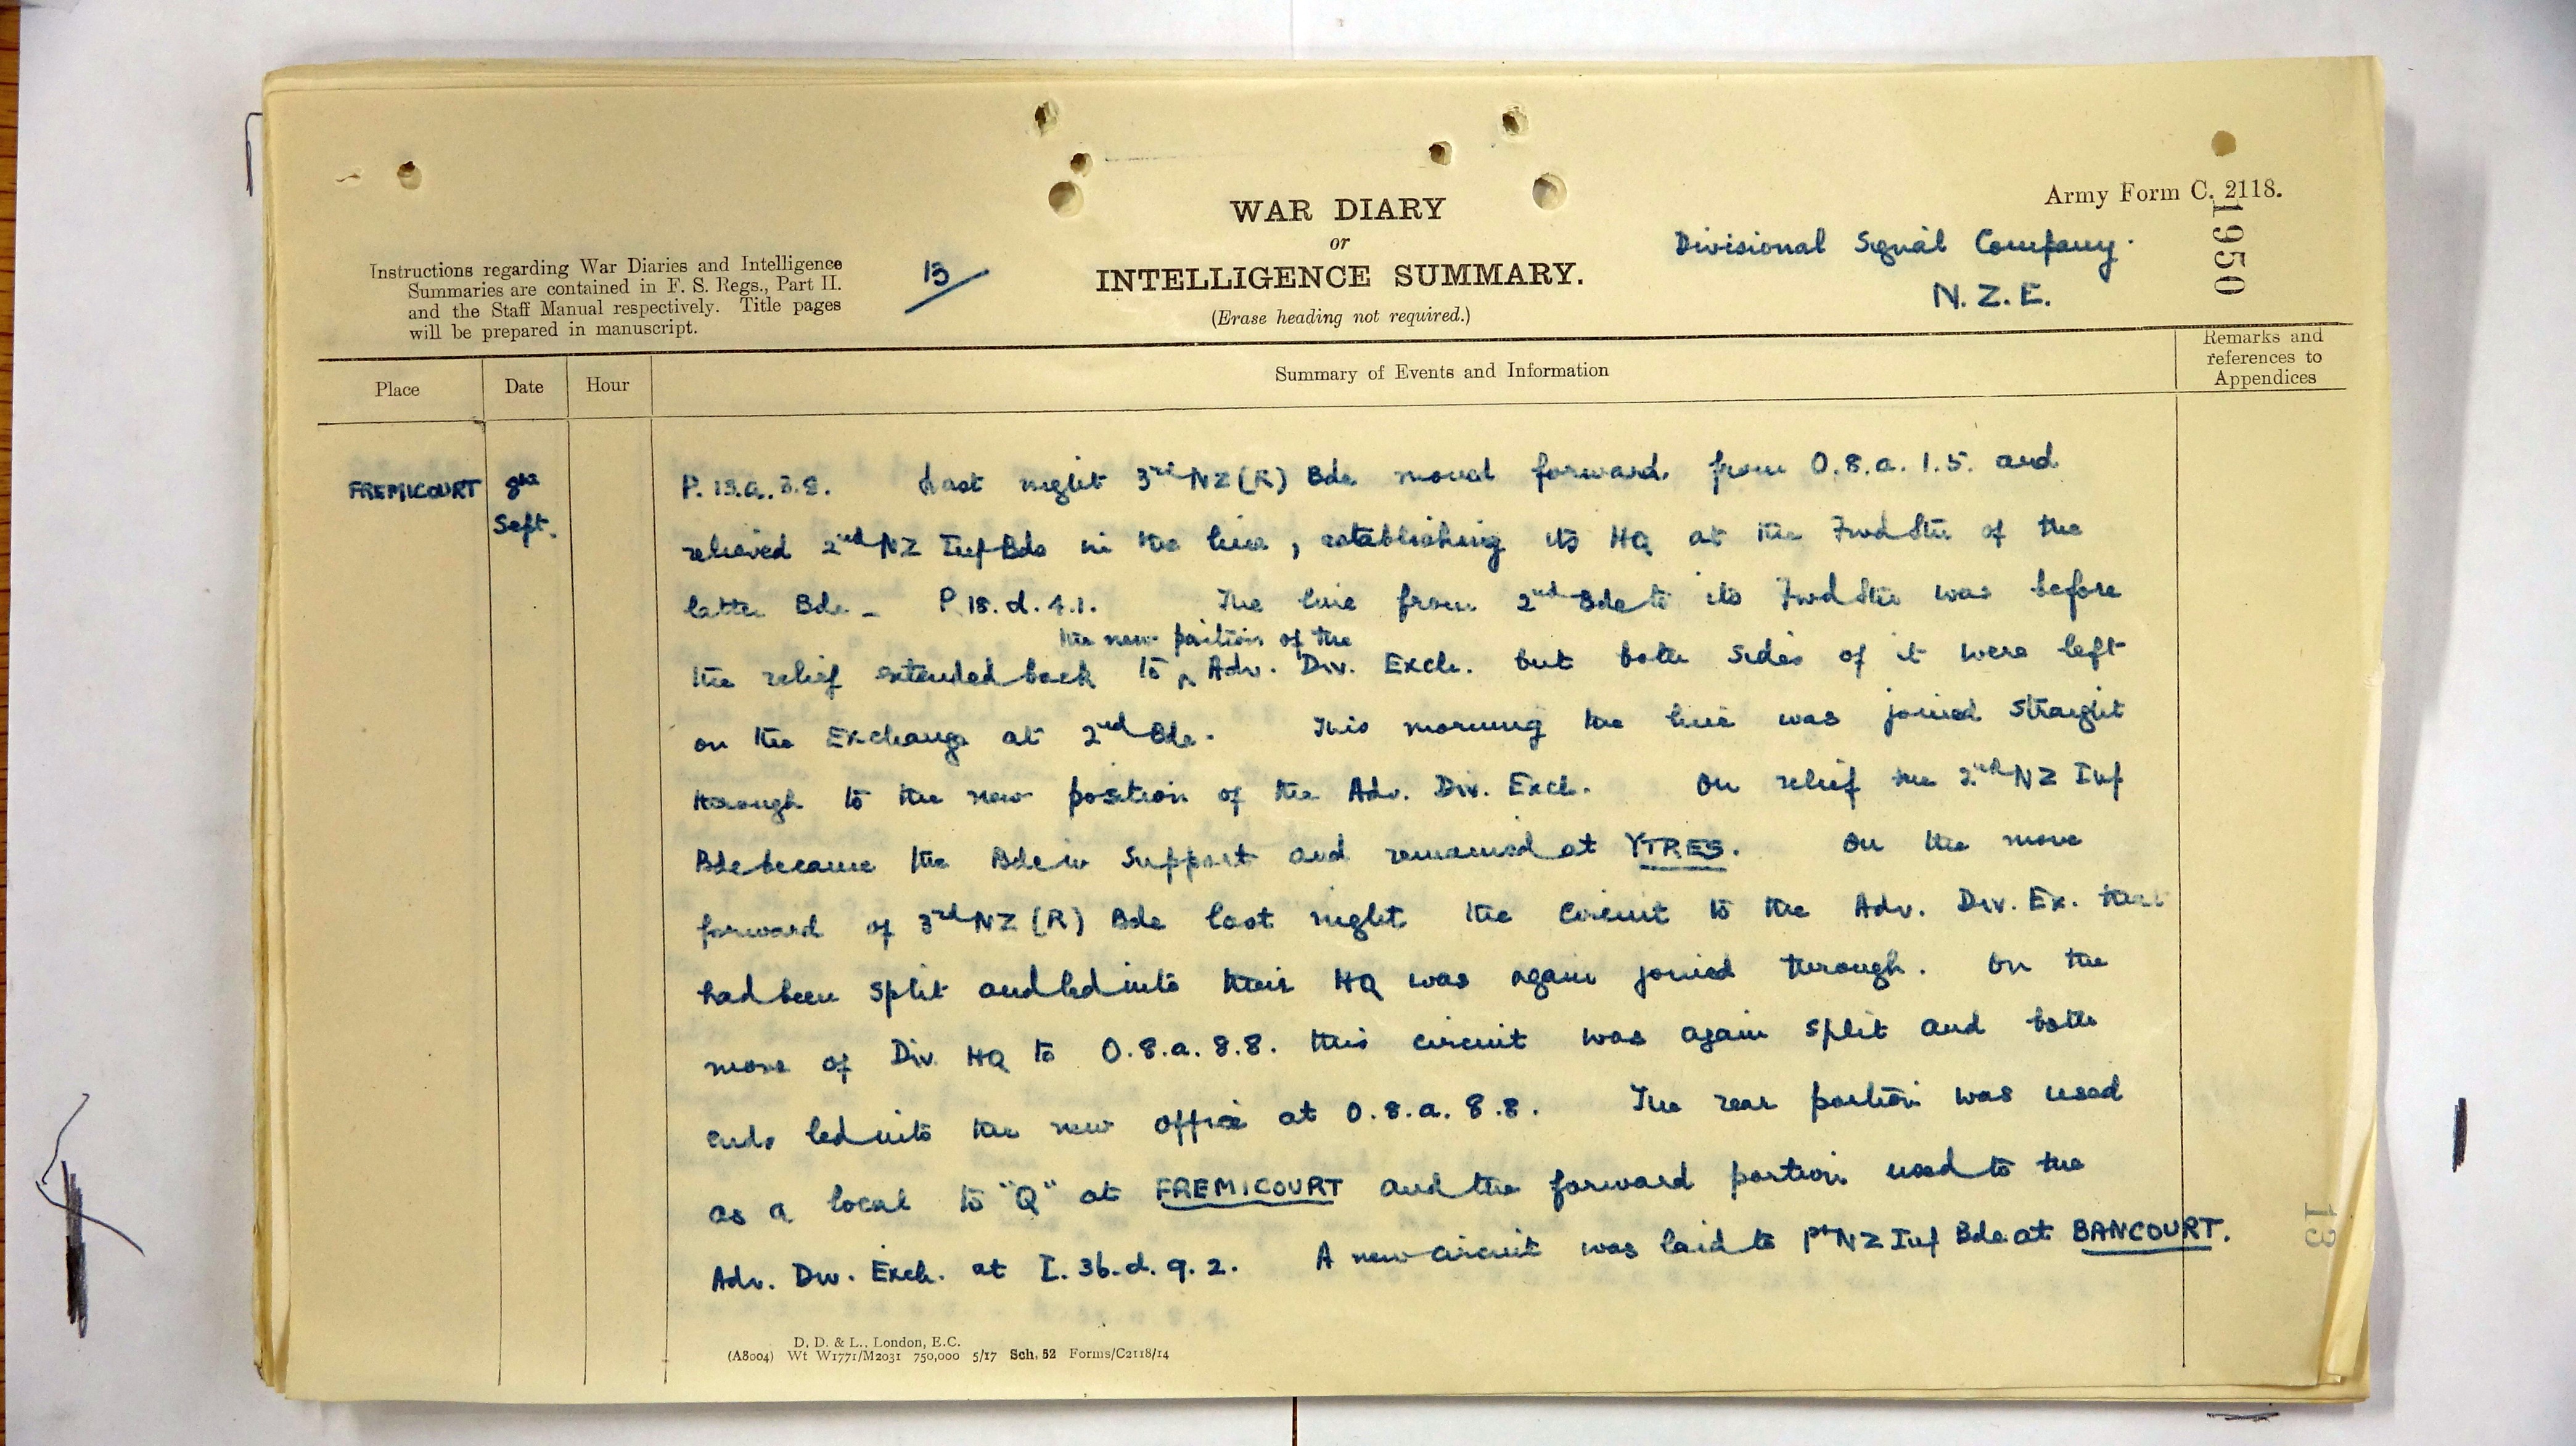 Army Form C. 2118.
1950
WAR DIARY
or
INTELLIGENCE SUMMARY.
(Erase heading not required.)
Instructions regarding War Diaries and Intelligence
Summaries are contained in F. S. Regs., Part II.
and the Staff Manual respectively. Title pages
will be prepared in manuscript.
13
Divisional Signal Company.
N. Z. E.
Place
Date
Hour
Summary of Events and Information
Remarks and
references to
Appendices
FREMICOURT
8th
Sept.
P. 13.a.3.8. Last night 3rd NZ (R) Bde moved forward from O.8.a.1.5. and
relieved 2nd NZ Inf Bde in the line, establishing its HQ at the Fwd Stn of the
latter Bde - P.18.d.4.1. The line from 2nd Bde to its Fwd Stn was before
the new position of the
the relief extended back to ^ Adv. Div. Exch. but both sides of it were left
on the Exchange at 2nd Bde. This morning the line was joined straight
through to the new position of the Adv. Div. Exch. On relief the 2nd NZ Inf
Bde became the Bde in Support and remained at YTRES. On the move
forward of 3rd NZ (R) Bde last night the circuit to the Adv. Div. Ex. that
had been split and led into their HQ was again joined through. On the
move of Div. HQ to O.8.a.8.8. this circuit was again split and both
ends led into the new office at O.8.a.8.8. The rear portion was used
as a local to "Q" at FREMICOURT and the forward portion used to the
Adv. Div. Exch. at I.36.d.9.2. A new circuit was laid to 1st NZ Inf Bde at BANCOURT.
13
D. D. & L., London, E.C.
(A8004) Wt W1771/M2031 750,000 5/17 Sch. 52 Forms/C2118/14